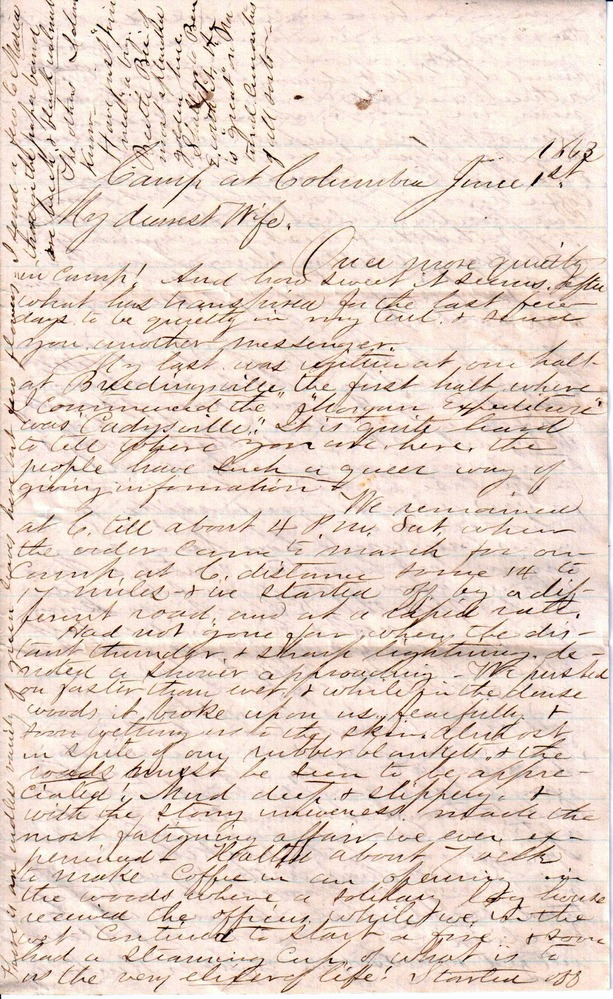 1863
Camp at Columbia June 1st
My dearest Wife.
Once more quietly
in camp! And how sweet it seems. After
what has transpired for the last few
days to be quietly in my tent, & send
you another messenger.
My last was written at one halt
at Breedingville, the first halt where
I commenced the "Morgan Expedition"
was Cadysville." It is quite hard
to tell where you are here, the
people have such a queer way of
giving information.
We remained
at C. till about 4 P.M. Sat. when
the order came to march for our
Camp at C. distance some 14 to
17 miles & we started off by a dif-
ferent road, and at a rapid rate.
Had not gone far, when the dis-
tant thunder & sharp lightning de-
noted a shower approaching - We pushed
on faster than ever, & while in the dense
woods it broke upon us, fearfully &
soon wetting us to the skin almost
in spite of our rubber blankets & the
roads must be seen to be appre-
ciated! Mud deep & slippery &
with the stony uneveness, made the
most fatiguing affair I've ever ex-
perienced - Halted about 7 oclk
to make Coffee in an opening in
the woods where a solitary Log house
received the officers while we, in the
wet contrived to start a fire & soon
had a steaming Cup of what is
as the very elixer of life! Started off
There is an endless variety of green leaves here but few flowers I send a few